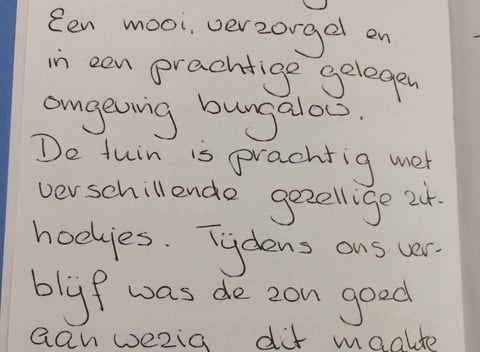 Een mooi, verzorgd en
in een prachtige gelegen
omgeving bungalow.
De tuin is prachtig met
verschillende gezellige zit-
hoekjes. Tijdens ons ver-
blijf was de zon goed
aanwezig dit maakte